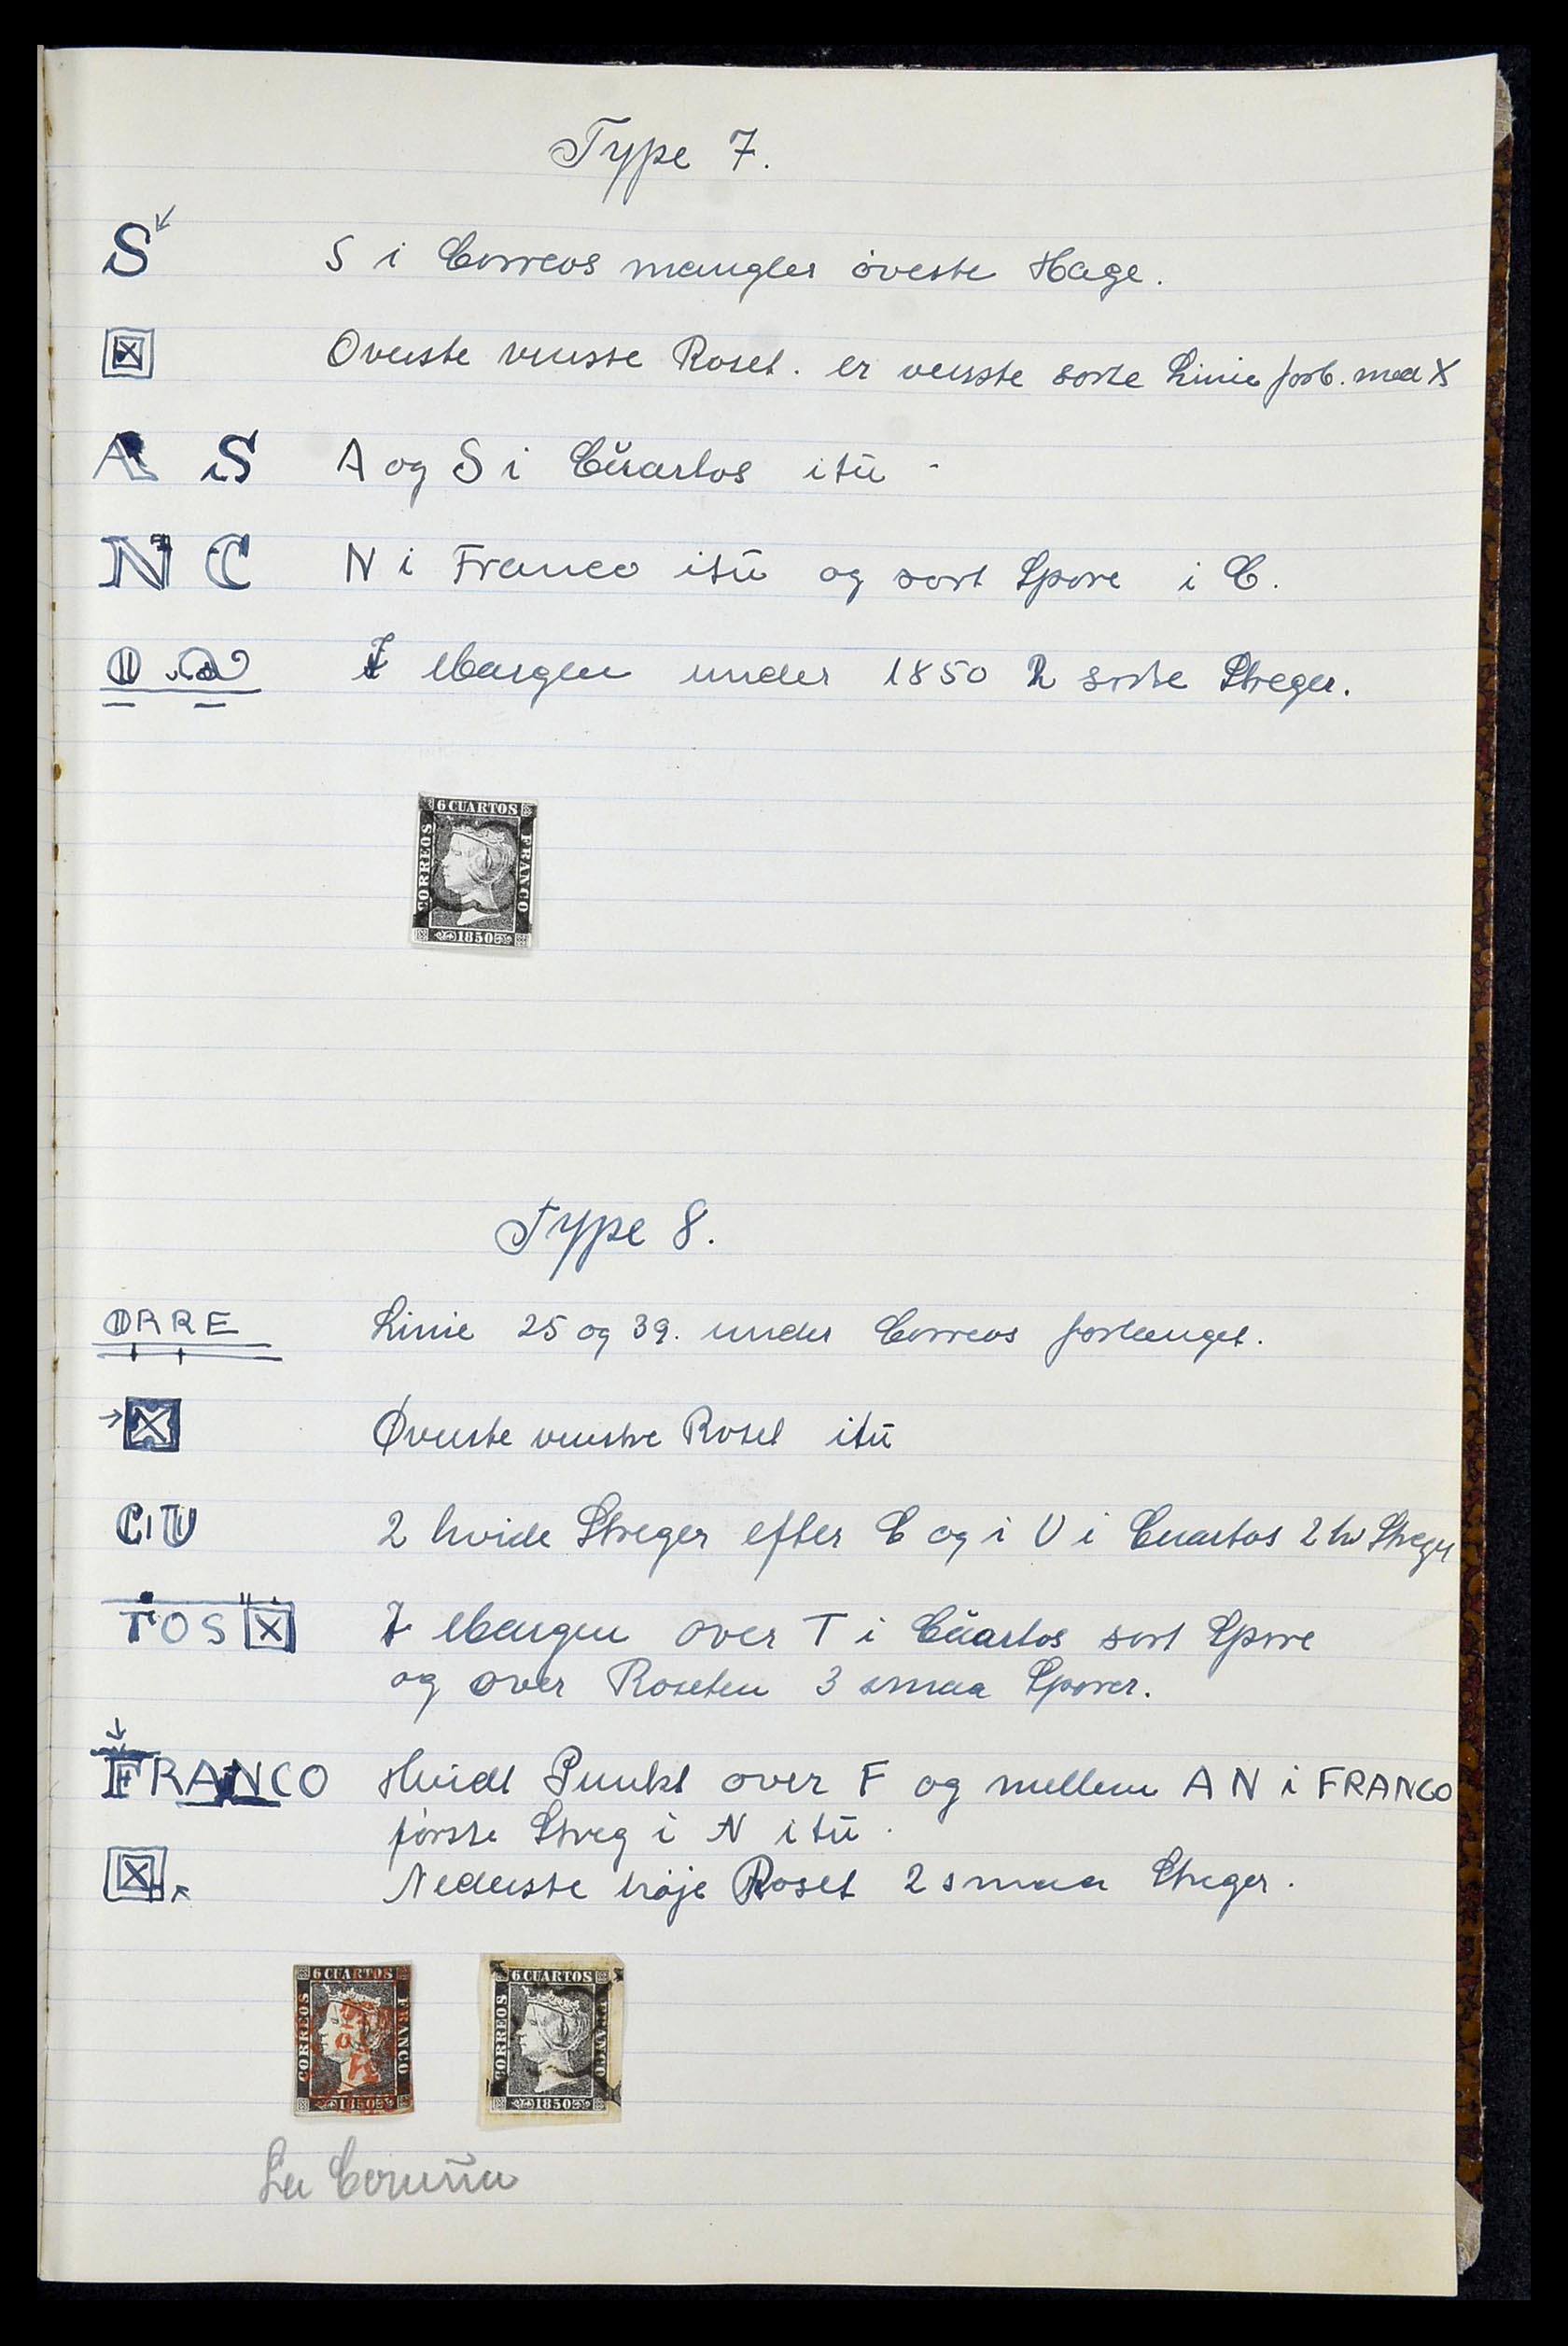 Type 7.
S S i Correos mangler øveste Hage.
Øverste venstre Roset. er venste sorte Linie forb. med X
A S A og S i Cŭartos itū
N C N i Franco itū og sort Spore i C.
O I Margen under 1850 2 sorte Streger.
6 CUARTOS
CORREOS
FRANCO
1850
Type 8.
ORRE Linie 25 og 39. under Correos forlænget.
Øverste venstre Roset itū
CIU 2 hvide Streger efter C og i U i Cuartos 2 hv Streger
TOS I Margen over T i Cŭartos sort Spore
og over Roseten 3 smaa Sporer.
FRANCO Hvidt Punkt over F og mellem A N i FRANCO
første Streg i N itū.
Nederste høje Roset 2 smaa Streger.
6 CUARTOS
CORREOS
FRANCO
1850
6 CUARTOS
CORREOS
FRANCO
1850
La Coruña